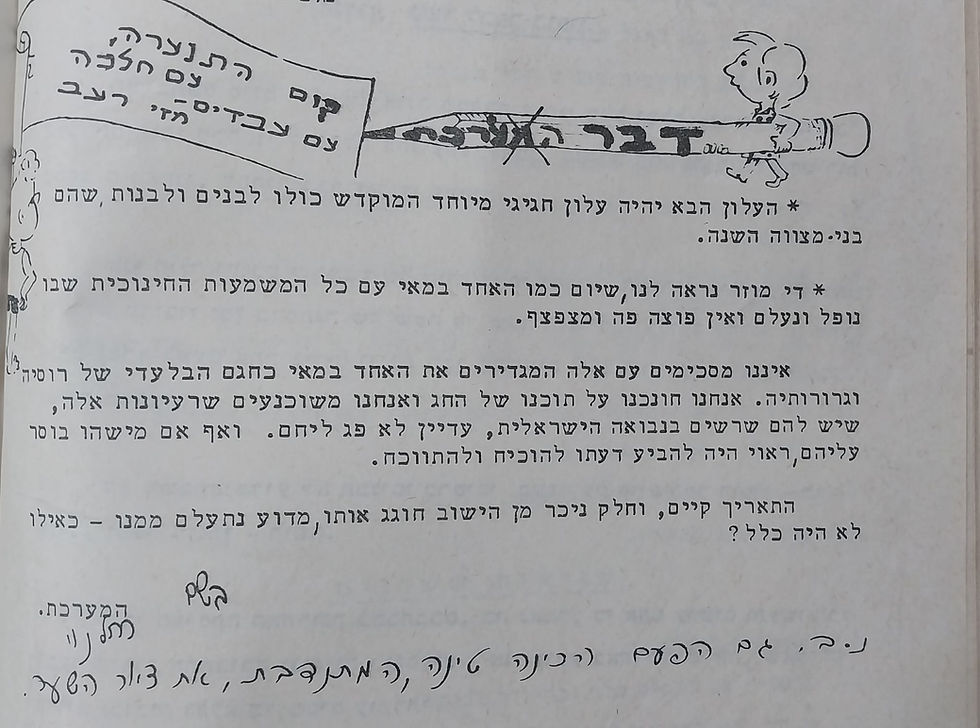 קום התנערה,
עם חלכה
עם עבדים-
מזי רעב
דבר המערכת
* העלון הבא יהיה עלון חגיגי מיוחד המוקדש כולו לבנים ולבנות ,שהם
בני-מצווה השנה.
* די מוזר נראה לנו,שיום כמו האחד במאי עם כל המשמעות החינוכית שבו
נופל ונעלם ואין פוצה פה ומצפצף.
איננו מסכימים עם אלה המגדירים את האחד במאי כחגם הבלעדי של רוסיה
וגרורותיה. אנחנו חונכנו על תוכנו של החג ואנחנו משוכנעים שרעיונות אלה,
שיש להם שרשים בנבואה הישראלית, עדיין לא פג ליחם. ואף אם מישהו בוסר
עליהם,ראוי היה להביע דעתו להוכיח ולהתווכח.
התאריך קיים, וחלק ניכר מן הישוב חוגג אותו,מדוע נתעלם ממנו - כאילו
לא היה כלל?
בשם
המערכת.
רחל נוי
נ.ב. גם הפעם הכינה טינה, המתנדבת, את ציור השער.